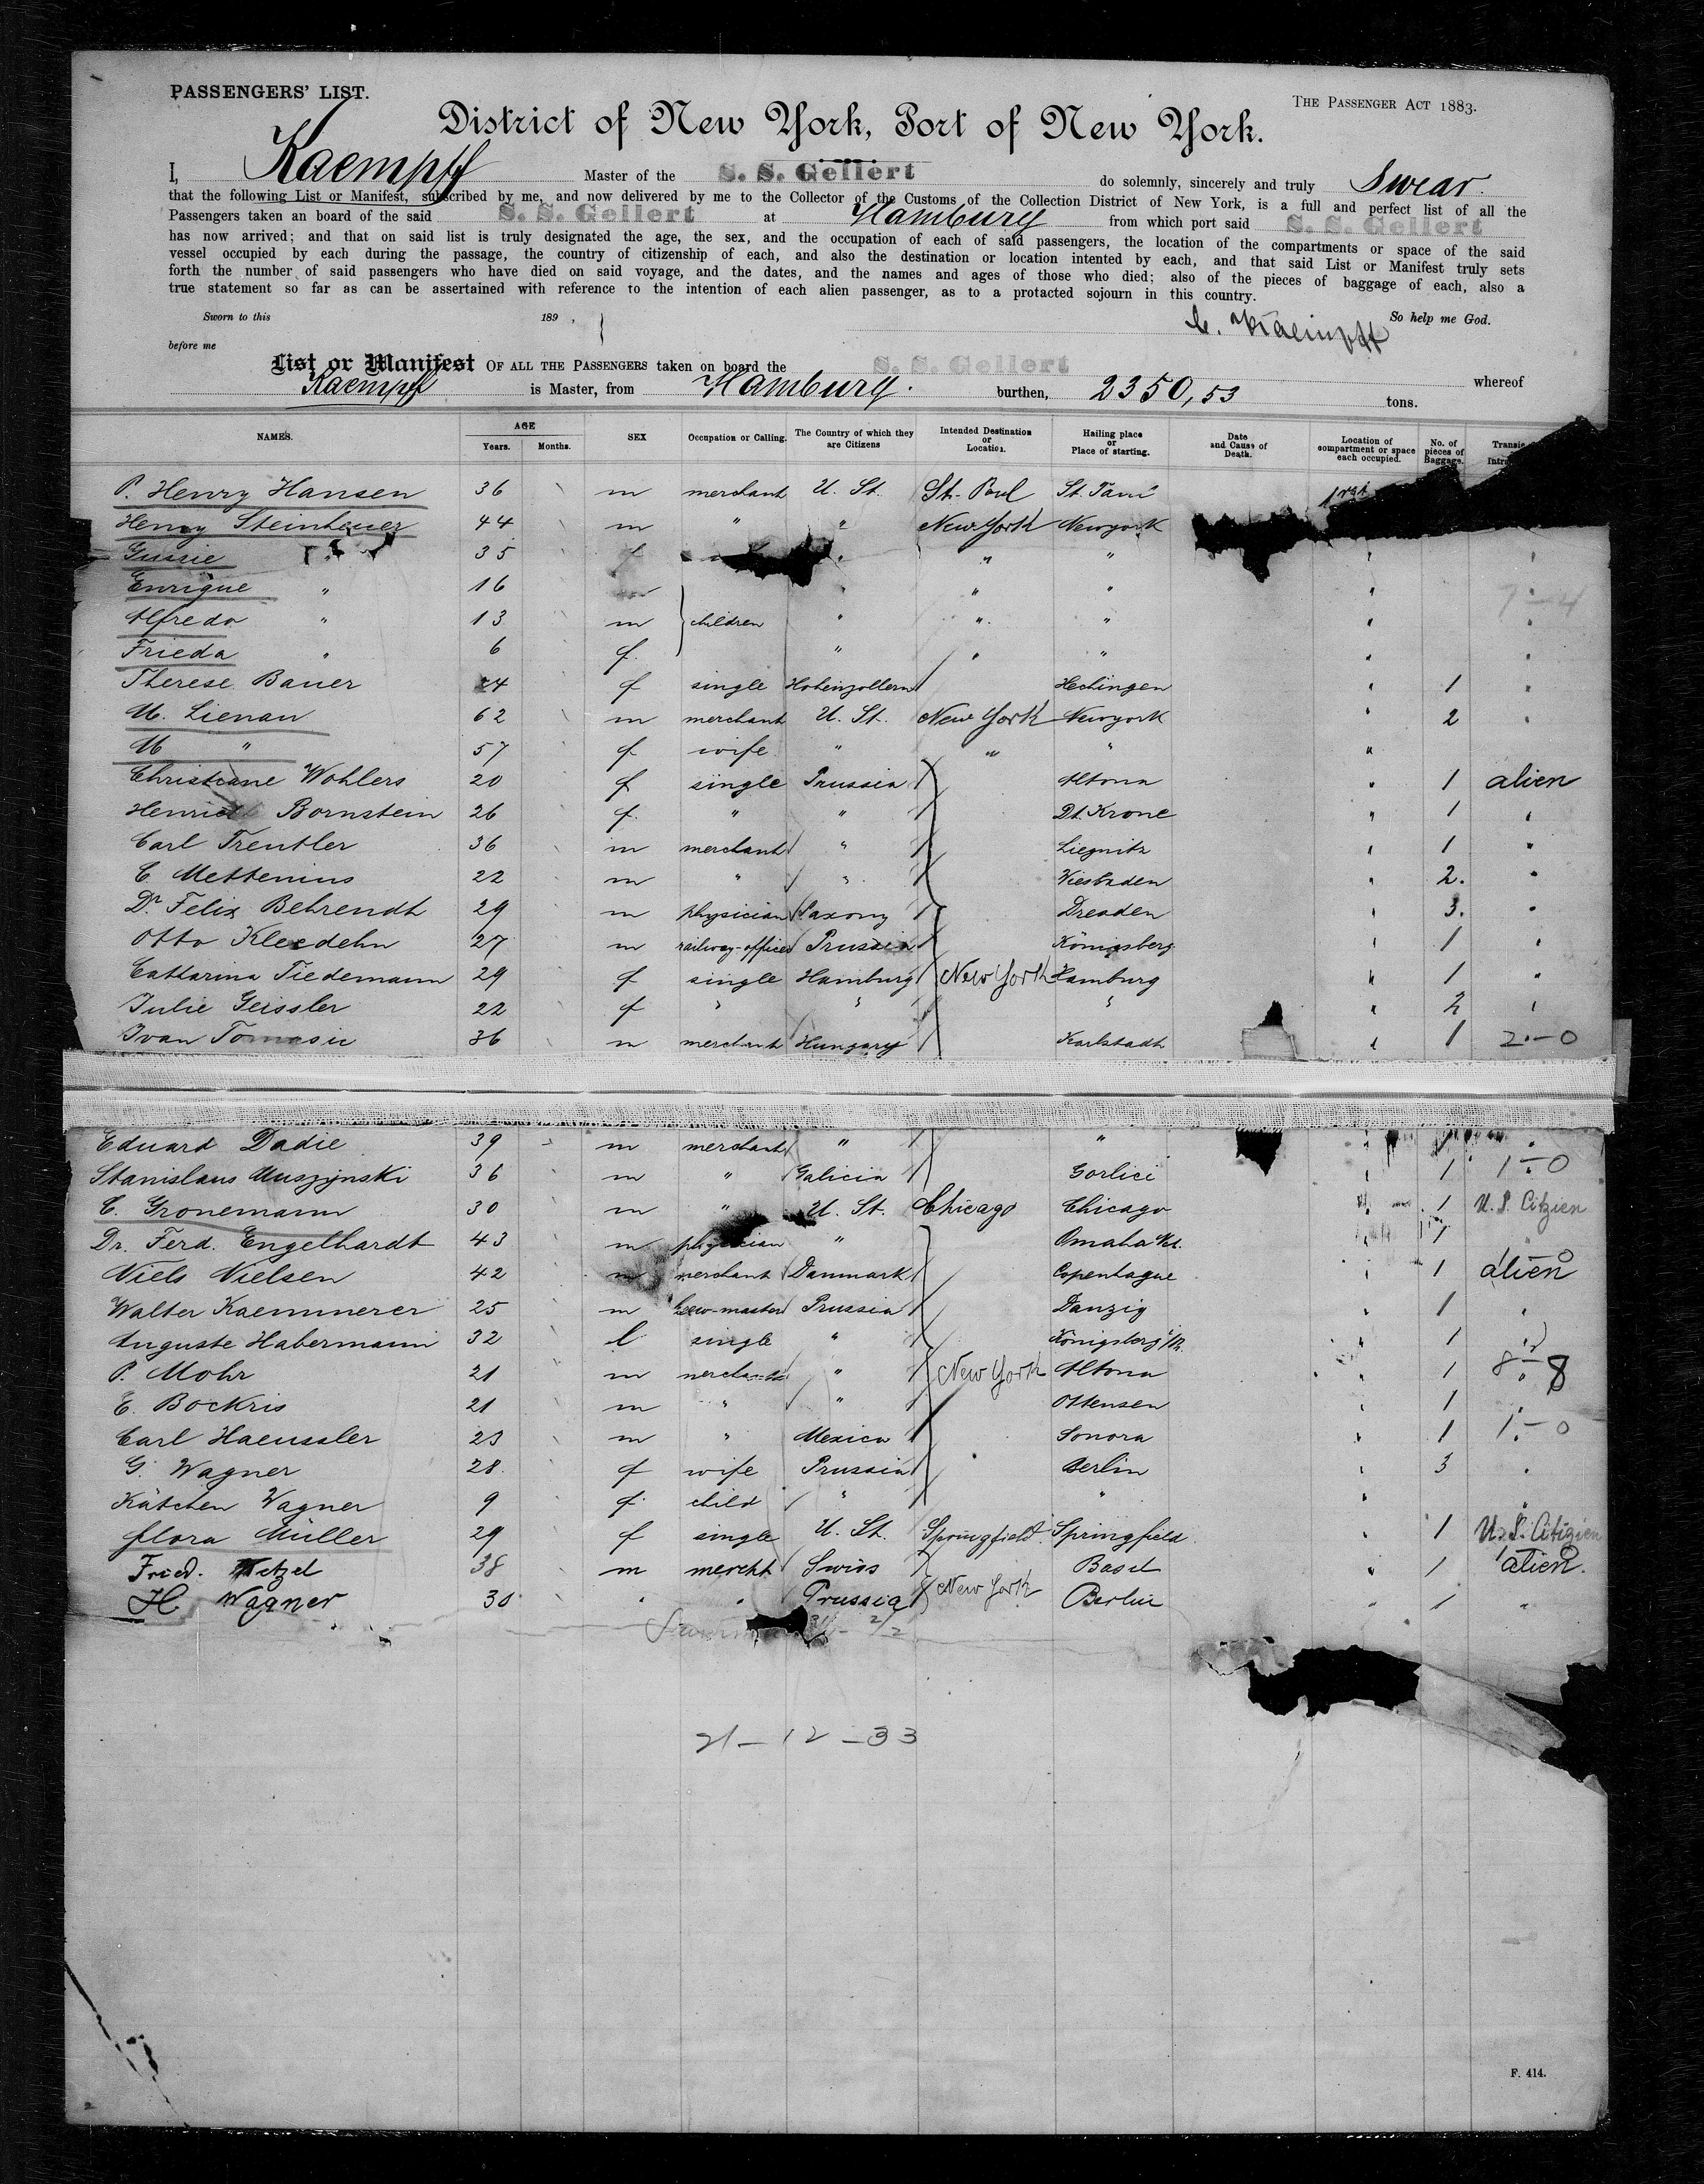 PASSENGERS' LIST.
THE PASSENGER ACT 1883.
District of New York, Port of New York.
I, Kaempff Master of the S. S. Gellert do solemnly, sincerely and truly Swear
that the following List or Manifest, subscribed by me, and now delivered by me to the Collector of the Customs of the Collection District of New York, is a full and perfect list of all the
Passengers taken an board of the said S. S. Gellert at Hamburg from which port said S. S. Gellert
has now arrived; and that on said list is truly designated the age, the sex, and the occupation of each of said passengers, the location of the compartments or space of the said
vessel occupied by each during the passage, the country of citizenship of each, and also the destination or location intented by each, and that said List or Manifest truly sets
forth the number of said passengers who have died on said voyage, and the dates, and the names and ages of those who died; also of the pieces of baggage of each, also a
true statement so far as can be assertained with reference to the intention of each alien passenger, as to a protacted sojourn in this country.
Sworn to this 189 , So help me God.
C. Kaempff
before me
List or Manifest OF ALL THE PASSENGERS taken on board the S. S. Gellert whereof
Kaempff is Master, from Hamburg. burthen, 2350,53 tons.
NAMES. AGE Years. Months. SEX Occupation or Calling. The Country of which they are Citizens Intended Destination or Location. Hailing place or Place of starting. Date and Cause of Death. Location of compartment or space each occupied. No. of pieces of Baggage.
P. Henry Hansen 36 m merchant U. St. St. Poul St.
Henry Steinheuer 44 m " " New York Newyork
Gussie " 35 f " " "
Enrique " 16 m " " " "
Alfredo " 13 m children " " " " "
Frieda " 6 f. " " " " "
Therese Bauer 24 f single Hohenzollern Hechingen " 1 "
M. Lienau 62 m merchant U. St. New York Newyork " 2 "
M " 57 f wife " " " "
Christiane Wohlers 20 f single Prussia Altona " 1 alien
Bornstein 26 f. " " Dt. Krone " 1 "
Carl Trentler 36 m merchant " Liegnitz " 1 "
C. Mettenius 22 m " " Wiesbaden " 2. "
Dr. Felix Behrendt 29 m physician Saxony Dresden " 3. "
Otto Kleedehn 27 m railway-officer Prussia Königsberg " 1 "
Cattarina Tiedemann 29 f single Hamburg New York Hamburg " 1 "
Julie Geissler 22 f " " " " 2 "
Ivan Tomasic 36 m merchant Hungary Karlstadt " 1 2-0
Eduard Dadie 39 m merchant " "
Stanislaus Muszynski 36 m " Galicia Gorlici " 1 1-0
C. Gronemann 30 m " U. St. Chicago Chicago 1 U. S. Citzien
Dr. Ferd. Engelhardt 43 m physician " Omaha 1 "
Niels Nielsen 42 m merchant Danmark Copenhague " 1 alien
Walter Kaemmerer 25 m Prussia Danzig " 1 "
Auguste Habermann 32 f single " Königsberg " 1 "
P. Mohr 21 m merchant " New York Altona " 1 8-8
E. Bockris 21 m " " Ottensen " 1 "
Carl Haeussler 23 m " Mexico Sonora " 1 1-0
G. Wagner 28 f wife Prussia Berlin " 3 "
Kätchen Wagner 9 f. child " " " "
Flora Müller 29 f single U. St. Springfield. Springfield " 1 U. S. Citizien
Fried. Wetzel 38 m mercht Swiss New York Basel " 1 alien.
H. Wagner 30 " " Prussia Berlin " 1 "
21-12-33
F. 414.